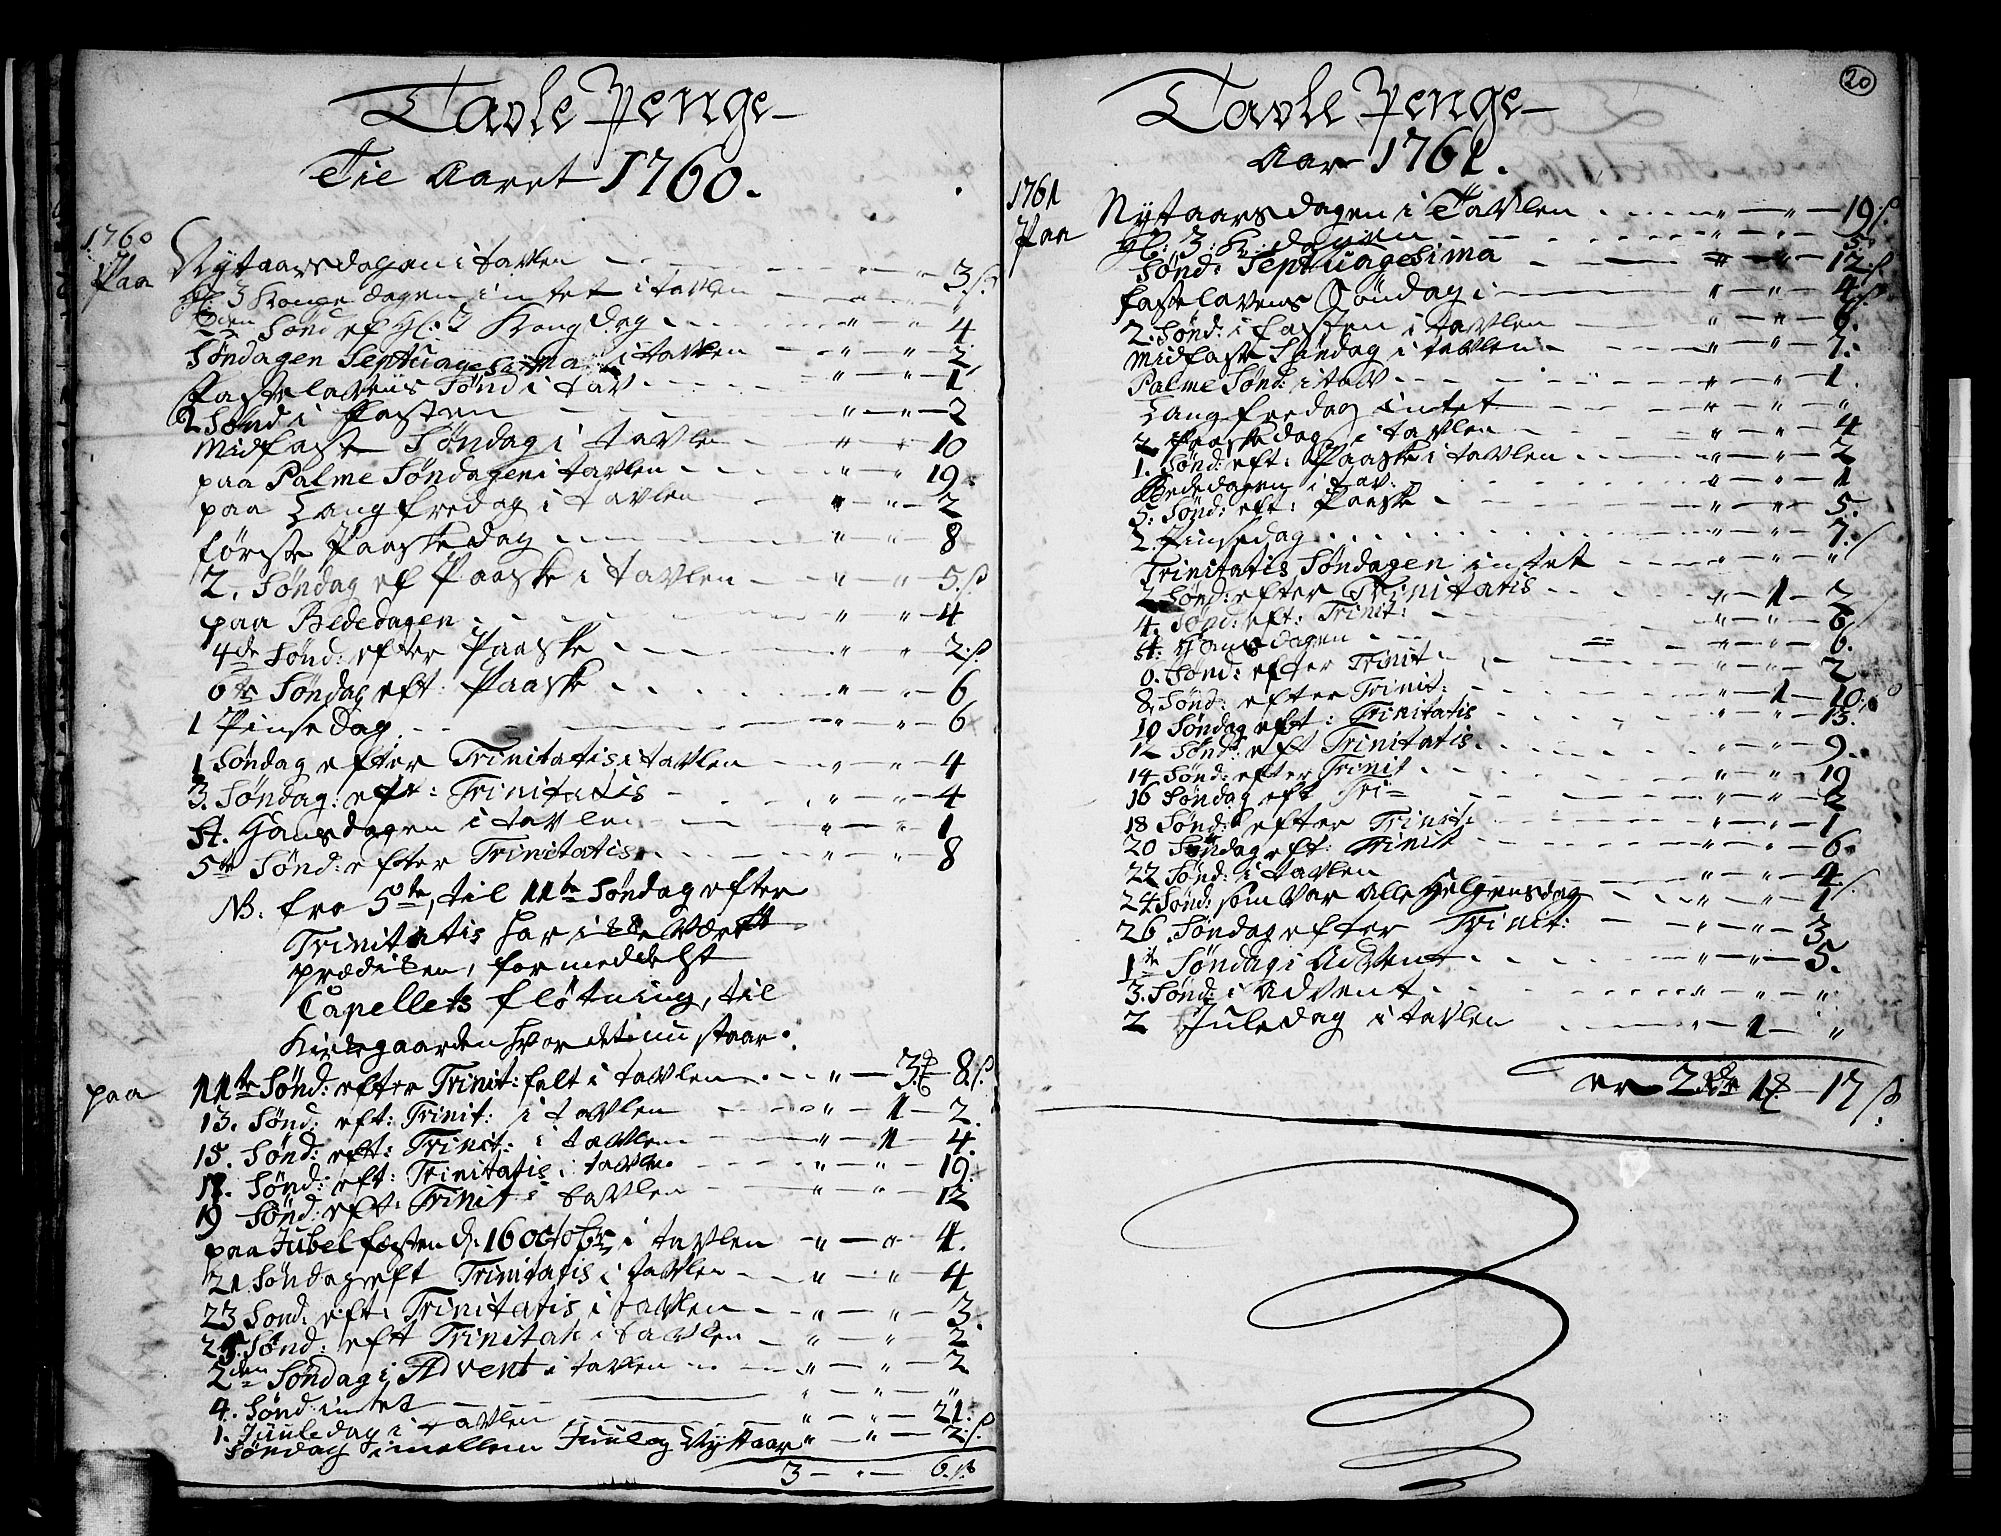 Tavle Penge
Til Aaret 1760.
1760
Paa Nytaarsdagen i tavlen 3 ß.
Hl: 3 Konge dagen intet i tavlen
2den Sønd ef Hl: 3 Kong dag 4
Søndagen Septuagesima i tavlen 2
Fastelavens Sønd i tav 1
2 Sønd i Fasten 2
Midfaste Søndag i tavlen 10
paa Palme Søndagen i tavlen 19
paa Langfredag i tavlen 2
første Paaskedag 8
2. Søndag ef Paaske i tavlen 5 ß
paa Bededagen 4
4de Sønd: efter Paaske 2 ß.
6te Søndag eft: Paaske 6
1 Pinsedag 6
1 Søndag efter Trinitatis i tavlen 4
3. Søndag: eft: Trinitatis 4
St. Hansdagen i tavlen 1
5te Sønd: efter Trinitatis 8
NB. fra 5te, til 11te Søndag efter
Trinitatis har icke vært
prædicken, formedelst
Capellets fløtning, til
Kirkegaarden hvor det nu staar.
paa 11te Sønd: efter Trinit: falt i tavlen 3 8 ß.
13. Sønd: eft: Trinit: i tavlen 1 2
15. Sønd: eft: Trinit: i tavlen 1 4
17. Sønd: eft: Trinitatis i tavle 19
19 Sønd: eft: Trinit i tavlen 12
paa Jubel fæsten d. 16 octobr i tavlen 4.
21 Søndag eft Trinitatis i tavlen 4
23 Sond: eft: Trinitatis i tavlen 3
25 Sønd: eft Trinitati i tavlen 2
2den Søndag i Advent i tavlen 2
4. Sønd intet "
1. Juuledag i tavlen 21
Søndag imellem Juul og Nyttaar 2 ß.
3 - . - 6 ß
20
Tavle Penge
Aar 1761.
1761
Paa Nytaarsdagen i Tavlen 19 ß
Hl: 3: K: dagen 5
Sønd: Septuagesima 12 ß
fastelavens Søndag i 4 ß.
2. Sønd: i fasten i tavlen 6.
Midfaste Søndag i tavlen 7.
Palme Sønd: i tav 1.
Langfredag intet "
2 Paaskedag i tavlen 4
1. Sønd: eft: Paaske i tavlen 2
Bededagen i tav. 1
5: Sønd: eft: Paaske 5.
2. Pinsedag 7. ß
Trinitatis Søndagen intet "
2 Sønd: efter Trinitatis 1 2
4. Sønd: eft: Trinit: 6
St: Hansdagen 6.
6. Sønd: efter Trinit 2
8. Sønd: efter Trinit: 1 10
10 Søndag eft: Trinitatis 13.
12 Sønd: eft Trinitatis 9.
14 Sønd: efter Trinit 19
16 Søndag eft Tri= 2
18 Sønd: efter Trinit: 1
20 Søndag eft: Trinit 6
22 Sønd: i tavlen 4. ß
24 Sønd: som var alle Helgensdag 1
26. Søndag efter Trinit: 3
1te Søndag i Advent 5.
3. Sønd: i Advent "
2 Juledag i tavlen 1 "
er 2 1 17 ß.